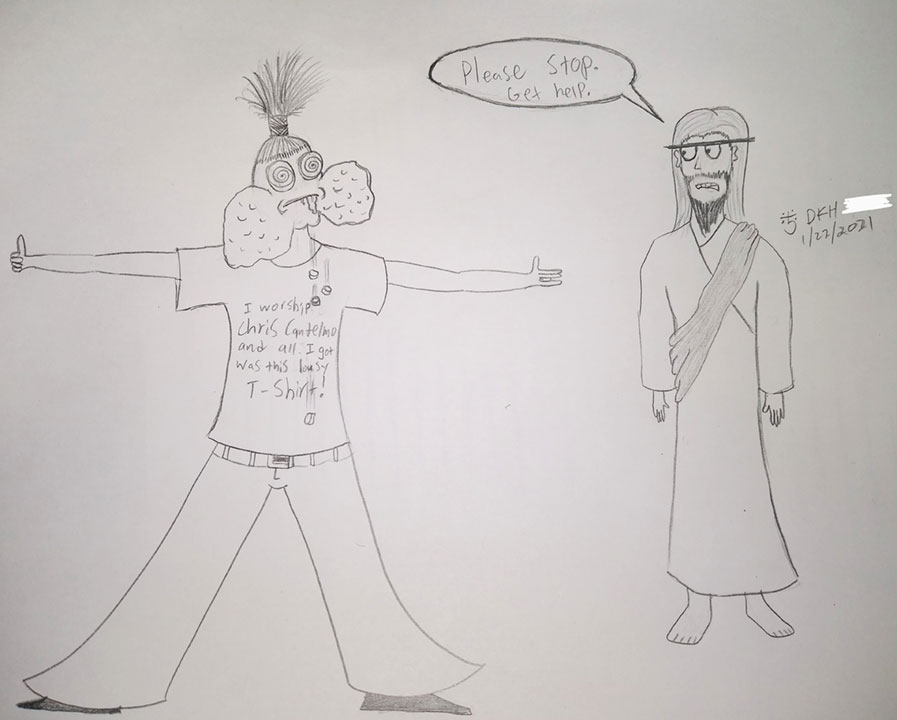 Please Stop.
Get help.
I worship
Chris Cantelmo
and all I got
was this lousy
T-Shirt!
DKH
1/22/2021